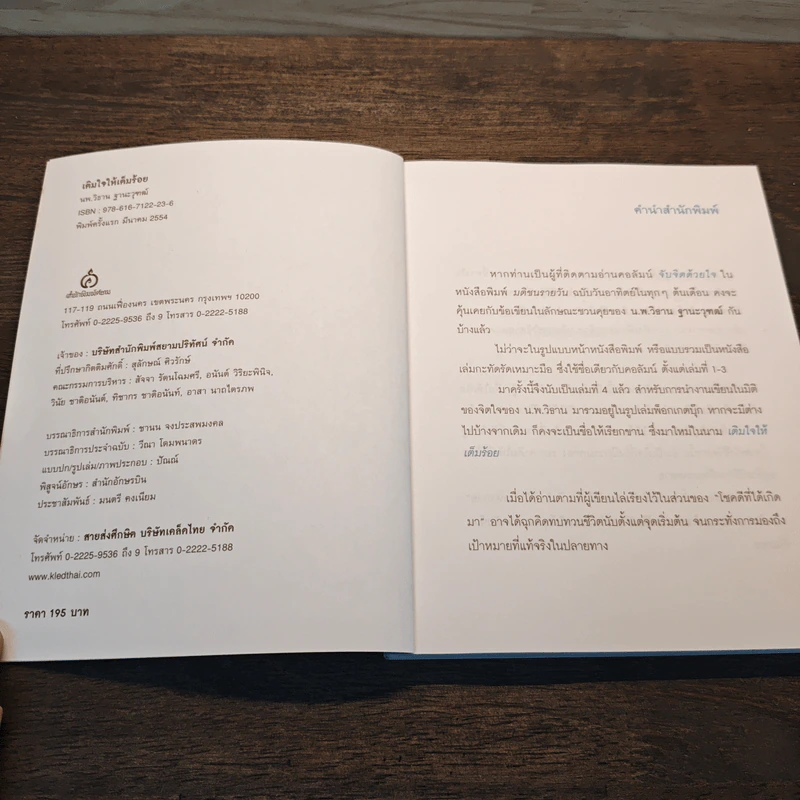 เติมใจให้เต็มร้อย
นพ.วิธาน ฐานะวุฑฒ์
ISBN : 978-616-7122-23-6
พิมพ์ครั้งแรก มีนาคม 2554
117-119 ถนนเฟื่องนคร เขตพระนคร กรุงเทพฯ 10200
โทรศัพท์ 0-2225-9536 ถึง 9 โทรสาร 0-2222-5188
เจ้าของ : บริษัทสำนักพิมพ์สยามปริทัศน์ จำกัด
ที่ปรึกษากิตติมศักดิ์ : สุลักษณ์ ศิวรักษ์
คณะกรรมการบริหาร : สัจจา รัตนโฉมศรี, อนันต์ วิริยะพินิจ,
วินัย ชาติอนันต์, ทิชากร ชาติอนันต์, อาสา นาถไตรภพ
บรรณาธิการสำนักพิมพ์ : ชานน จงประสพมงคล
บรรณาธิการประจำฉบับ : วีณา โดมพนาดร
แบบปก/รูปเล่ม/ภาพประกอบ : ปัณณ์
พิสูจน์อักษร : สำนักอักษรบิน
ประชาสัมพันธ์ : มนตรี คงเนียม
จัดจำหน่าย : สายส่งศึกษิต บริษัทเคล็ดไทย จำกัด
โทรศัพท์ 0-2225-9536 ถึง 9 โทรสาร 0-2222-5188
www.kledthai.com
ราคา 195 บาท
คำนำสำนักพิมพ์
หากท่านเป็นผู้ที่ติดตามอ่านคอลัมน์ จับจิตด้วยใจ ใน
หนังสือพิมพ์ มติชนรายวัน ฉบับวันอาทิตย์ในทุกๆ ต้นเดือน คงจะ
คุ้นเคยกับข้อเขียนในลักษณะชวนคุยของ น.พ.วิธาน ฐานะวุฑฒ์ กัน
บ้างแล้ว
ไม่ว่าจะในรูปแบบหน้าหนังสือพิมพ์ หรือแบบรวมเป็นหนังสือ
เล่มกะทัดรัดเหมาะมือ ซึ่งใช้ชื่อเดียวกับคอลัมน์ ตั้งแต่เล่มที่ 1-3
มาครั้งนี้จึงนับเป็นเล่มที่ 4 แล้ว สำหรับการนำงานเขียนในมิติ
ของจิตใจของ น.พ.วิธาน มารวมอยู่ในรูปเล่มพ็อกเกตบุ๊ก หากจะมีต่าง
ไปบ้างจากเดิม ก็คงจะเป็นชื่อให้เรียกขาน ซึ่งมาใหม่ในนาม เติมใจให้
เต็มร้อย
เมื่อได้อ่านตามที่ผู้เขียนไล่เรียงไว้ในส่วนของ "โชคดีที่ได้เกิด
มา" อาจได้ฉุกคิดทบทวนชีวิตนับตั้งแต่จุดเริ่มต้น จนกระทั่งการมองถึง
เป้าหมายที่แท้จริงในปลายทาง